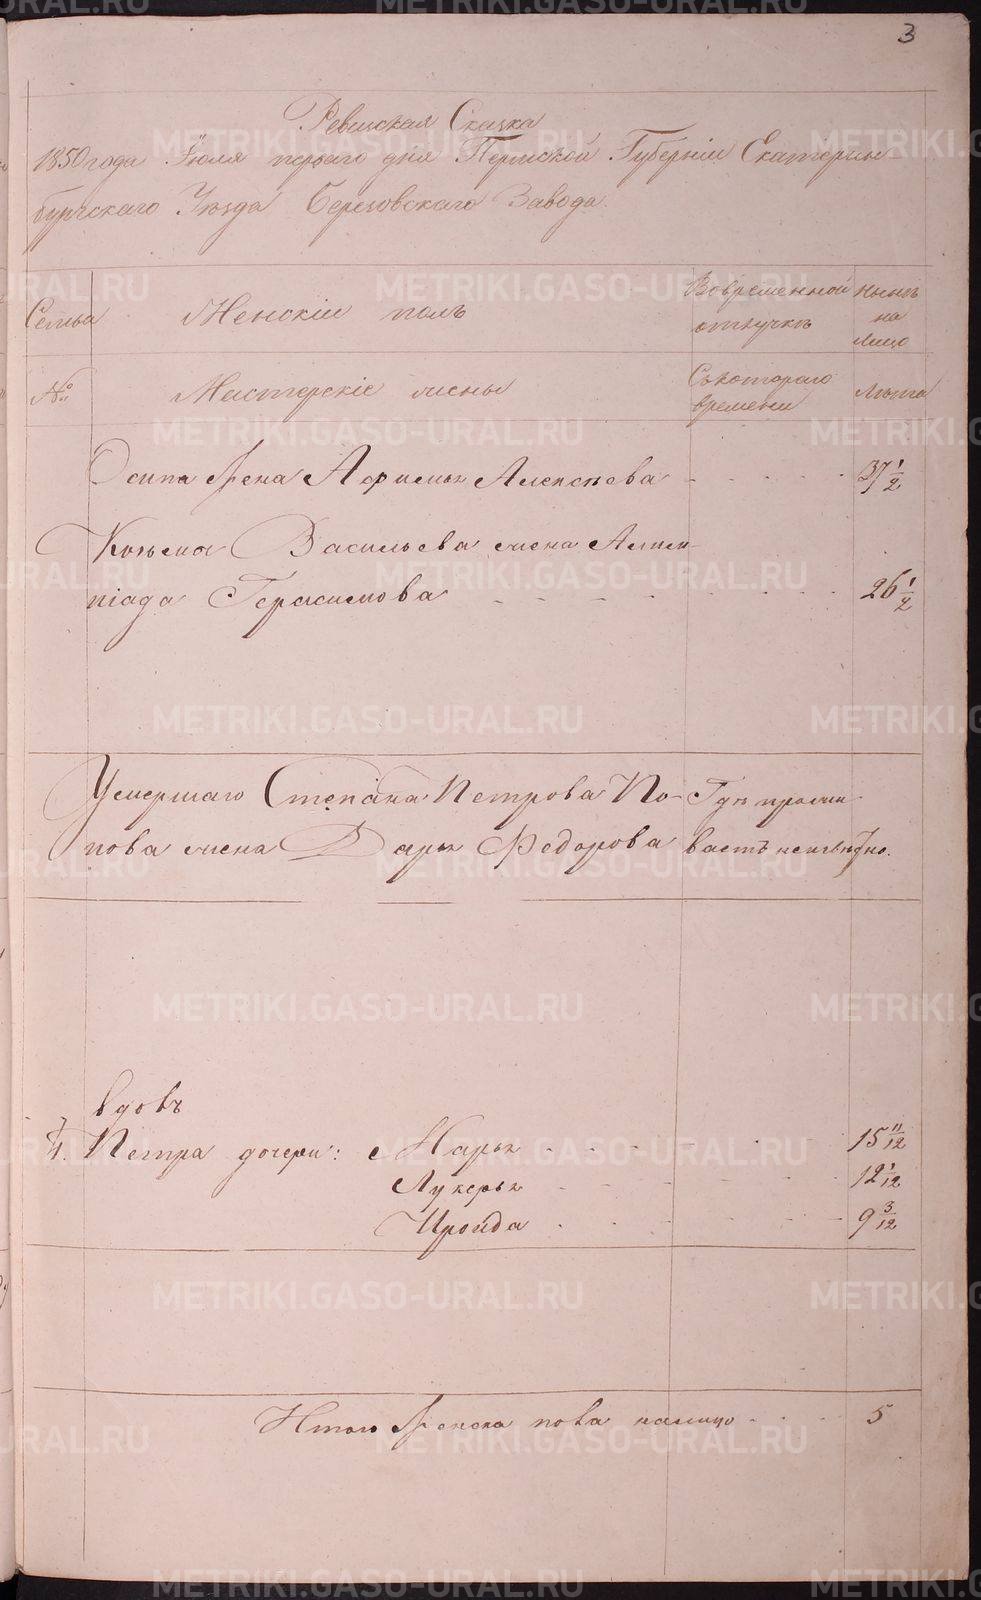 3
Ревизская Сказка
1850 года Іюля перваго дня Пермской Губерніи Екатерин
бургскаго Уѣзда Березовскаго Завода.
Семьи
Женскій полъ
Вовременной
отлучкѣ
Нынѣ
на
Лицо
№
Мастерскіе жены
Съкотораго
времени
Лѣта
Осипа жена Афимья Алексѣева 37 1/2
Козьмы Васильева жена Алим
піада Герасимова 26 1/2
Умершаго Степана Петрова По- Гдѣ прожи
пова жена Дарья Федорова ваетъ неизвѣстно.
вдовъ
4. Петра дочери: Марья 15 11/12
Лукерья 12 1/12
Ироида 9 3/12
Итого женска пола налицо 5
METRIKI.GASO-URAL.RU